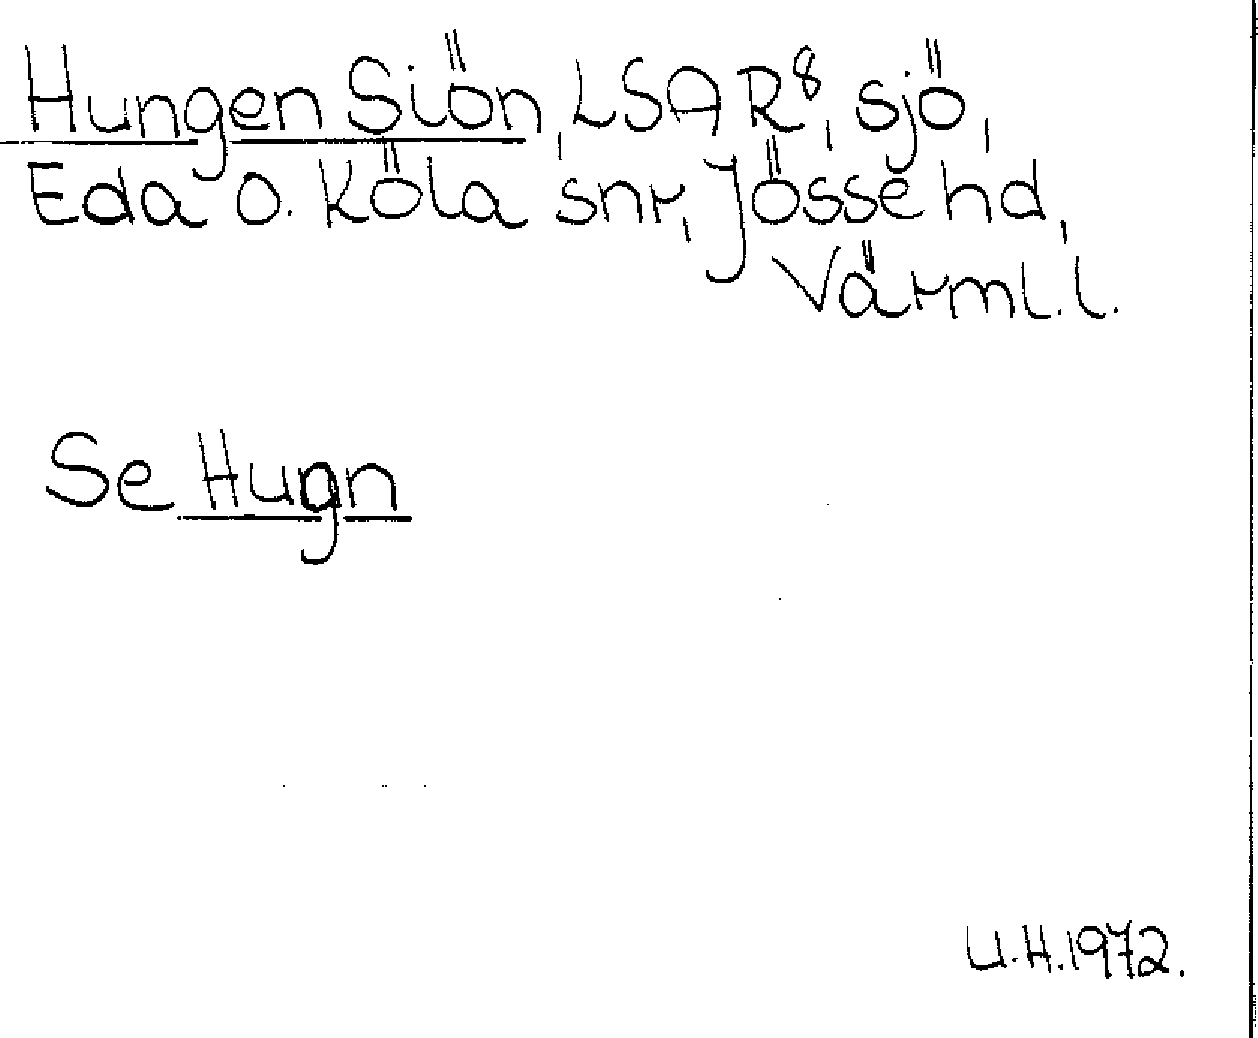 Hungen Siön, LSA R8, sjö,
Eda o. Köla snr, Jösse hd,
Värml.l.
Se Hugn
U.H.1972.